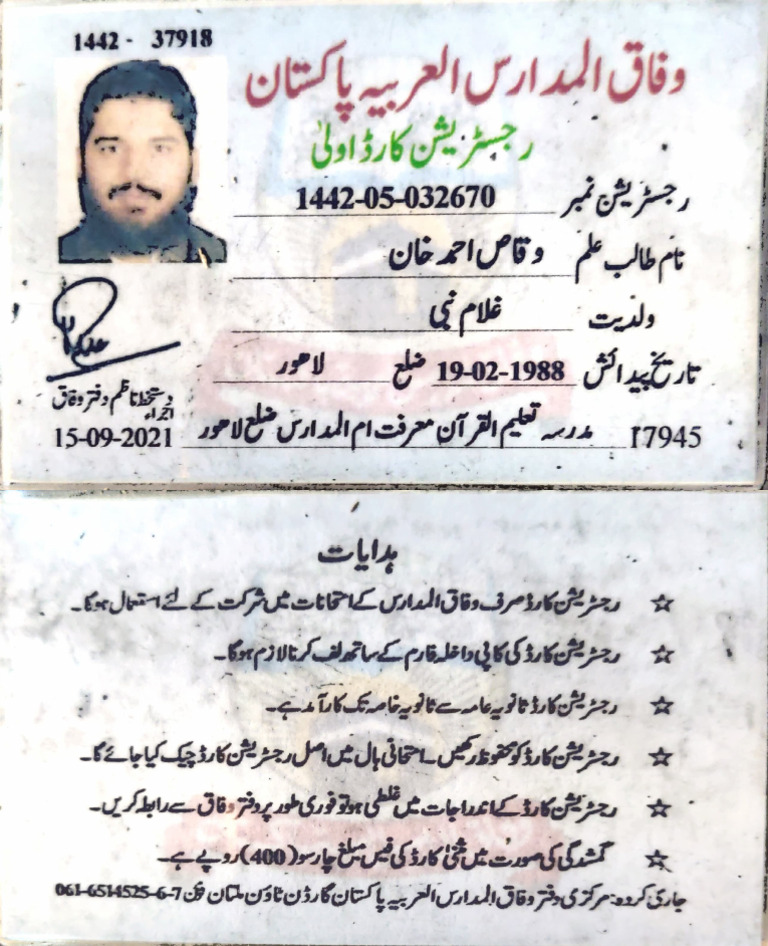 1442 - 37918
وفاق المدارس العربیہ پاکستان
رجسٹریشن کارڈ اولیٰ
رجسٹریشن نمبر 1442-05-032670
نام طالب علم وقاص احمد خان
ولدیت غلام نبی
تاریخ پیدائش 19-02-1988 ضلع لاھور
دستخط ناظم دفتر وفاق
اجراء
17945 مدرسہ تعلیم القرآن معرفت ام المدارس ضلع لاھور 15-09-2021
ہدایات
☆ رجسٹریشن کارڈ صرف وفاق المدارس کے امتحانات میں شرکت کے لئے استعمال ہوگا۔
☆ رجسٹریشن کارڈ کی کاپی داخلہ فارم کے ساتھ لف کرنا لازم ہوگا۔
☆ رجسٹریشن کارڈ ثانویہ عامہ سے ثانویہ خاصہ تک کارآمد ہے۔
☆ رجسٹریشن کارڈ کو محفوظ رکھیں۔ امتحانی ہال میں اصل رجسٹریشن کارڈ چیک کیا جائے گا۔
☆ رجسٹریشن کارڈ کے اندراجات میں غلطی ہو تو فوری طور پر دفتر وفاق سے رابطہ کریں۔
☆ گمشدگی کی صورت میں مثنیٰ کارڈ کی فیس مبلغ چار سو (400) روپے ہے۔
جاری کردہ: مرکزی دفتر وفاق المدارس العربیہ پاکستان گارڈن ٹاؤن ملتان فون 7-6-6514525-061